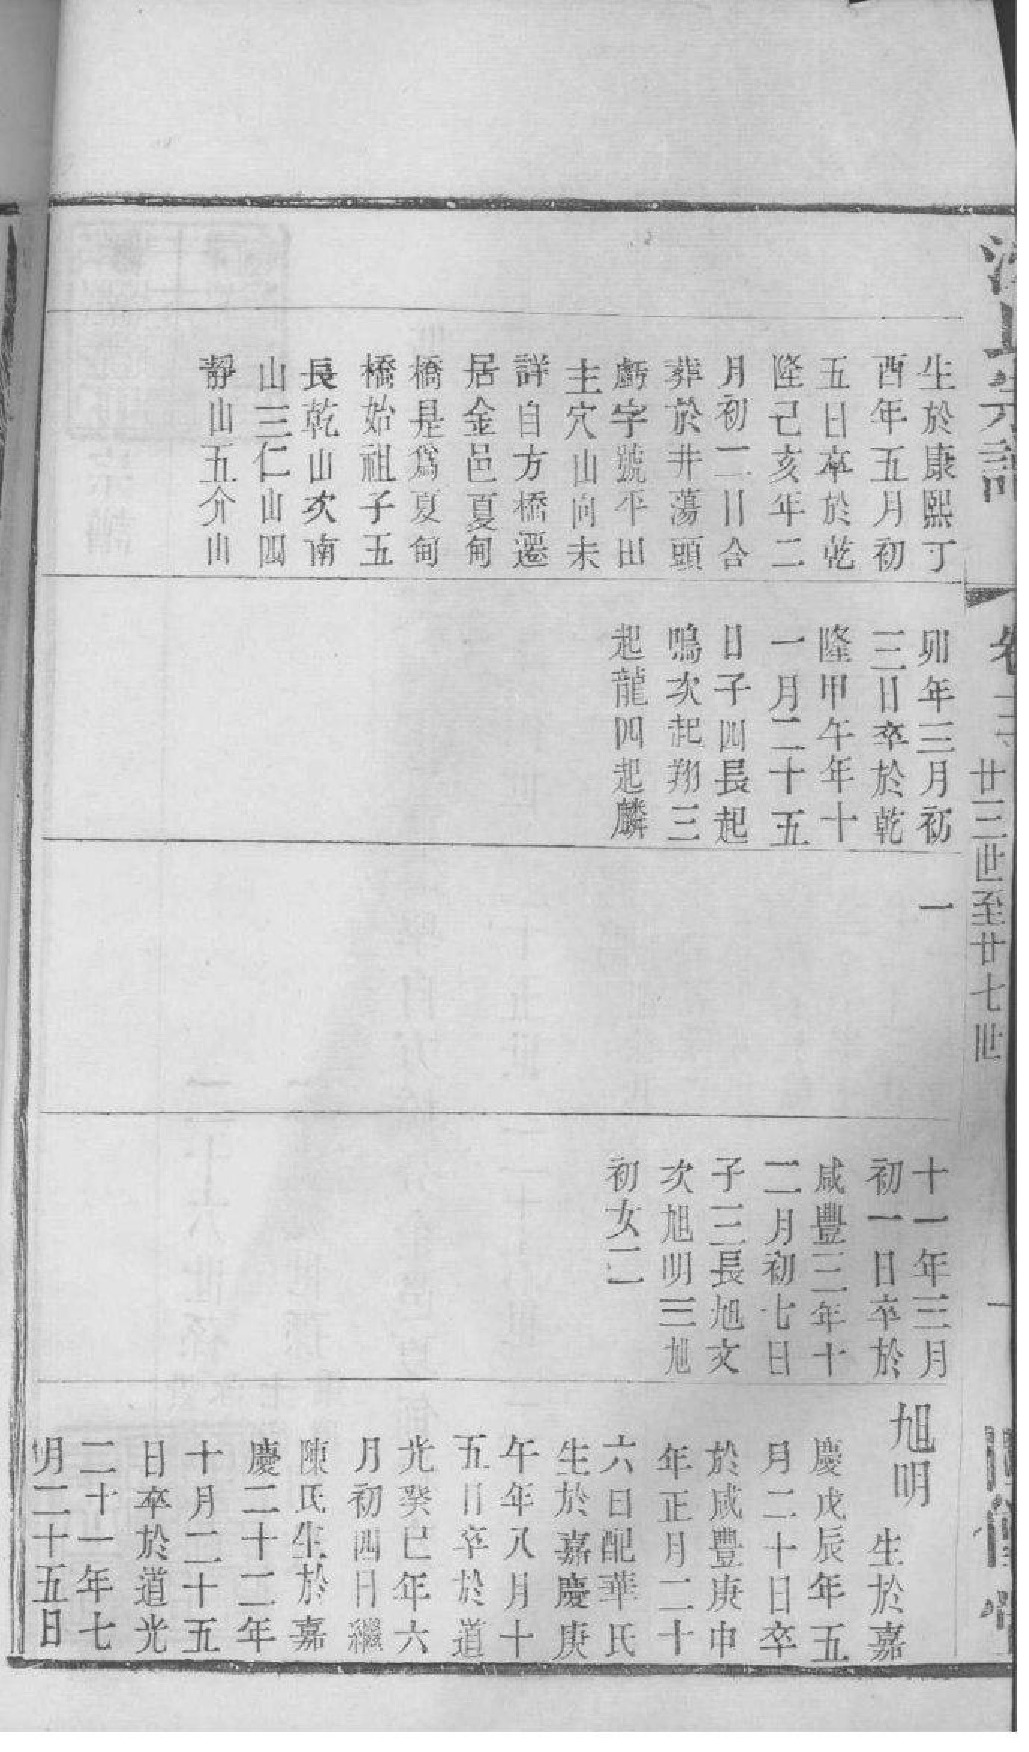 宗譜
卷十二
廿三世至廿七世
生於康熙丁
酉年五月初
五日卒於乾
隆己亥年二
月初二日合
葬於井蕩頭
虧字號平田
主穴山向未
詳自方橋遷
居金邑夏甸
橋是爲夏甸
橋始祖子五
長乾山次南
山三仁山四
靜山五介山
卯年三月初
三日卒於乾
隆甲午年十
一月二十五
日子四長起
鳴次起翔三
起龍四起麟
一
十一年三月
初一日卒於
咸豐三年十
二月初七日
子三長旭文
次旭明三旭
初女二
旭明 生於嘉
慶戊辰年五
月二十日卒
於咸豐庚申
年正月二十
六日配華氏
生於嘉慶庚
午年八月十
五日卒於道
光癸巳年六
月初四日繼
陳氏生於嘉
慶二十二年
十月二十五
日卒於道光
二十一年七
月二十五日